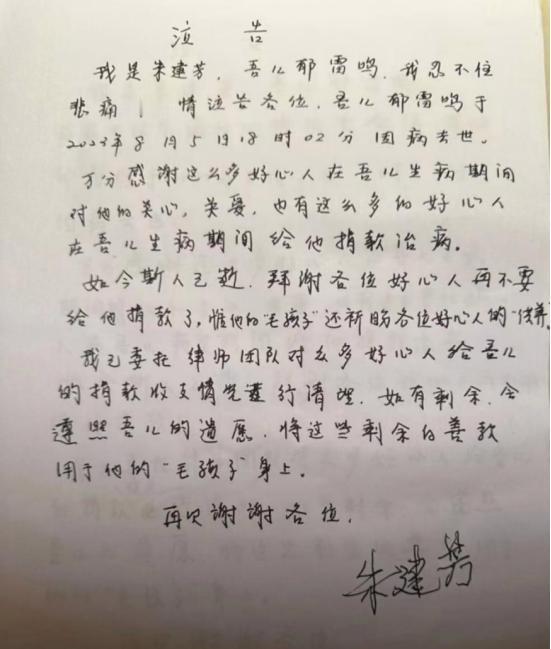 泣 告
我是朱建芳，吾儿郁雷鸣，我忍不住
悲痛！情泣告各位，吾儿郁雷鸣于
2023年8月5日18时02分因病去世。
万分感谢这么多好心人在吾儿生病期间
对他的关心，关爱，也有这么多的好心人
在吾儿生病期间给他捐款治病。
如今斯人已逝，拜谢各位好心人再不要
给他捐款了，惟他的“毛孩子”还祈盼各位好心人的“供养”。
我已委托律师团队对么多好心人给吾儿
的捐款收支情况进行清理，如有剩余，会
遵照吾儿的遗愿，将这些剩余的善款
用于他的“毛孩子”身上。
再次谢谢各位，
朱建芳